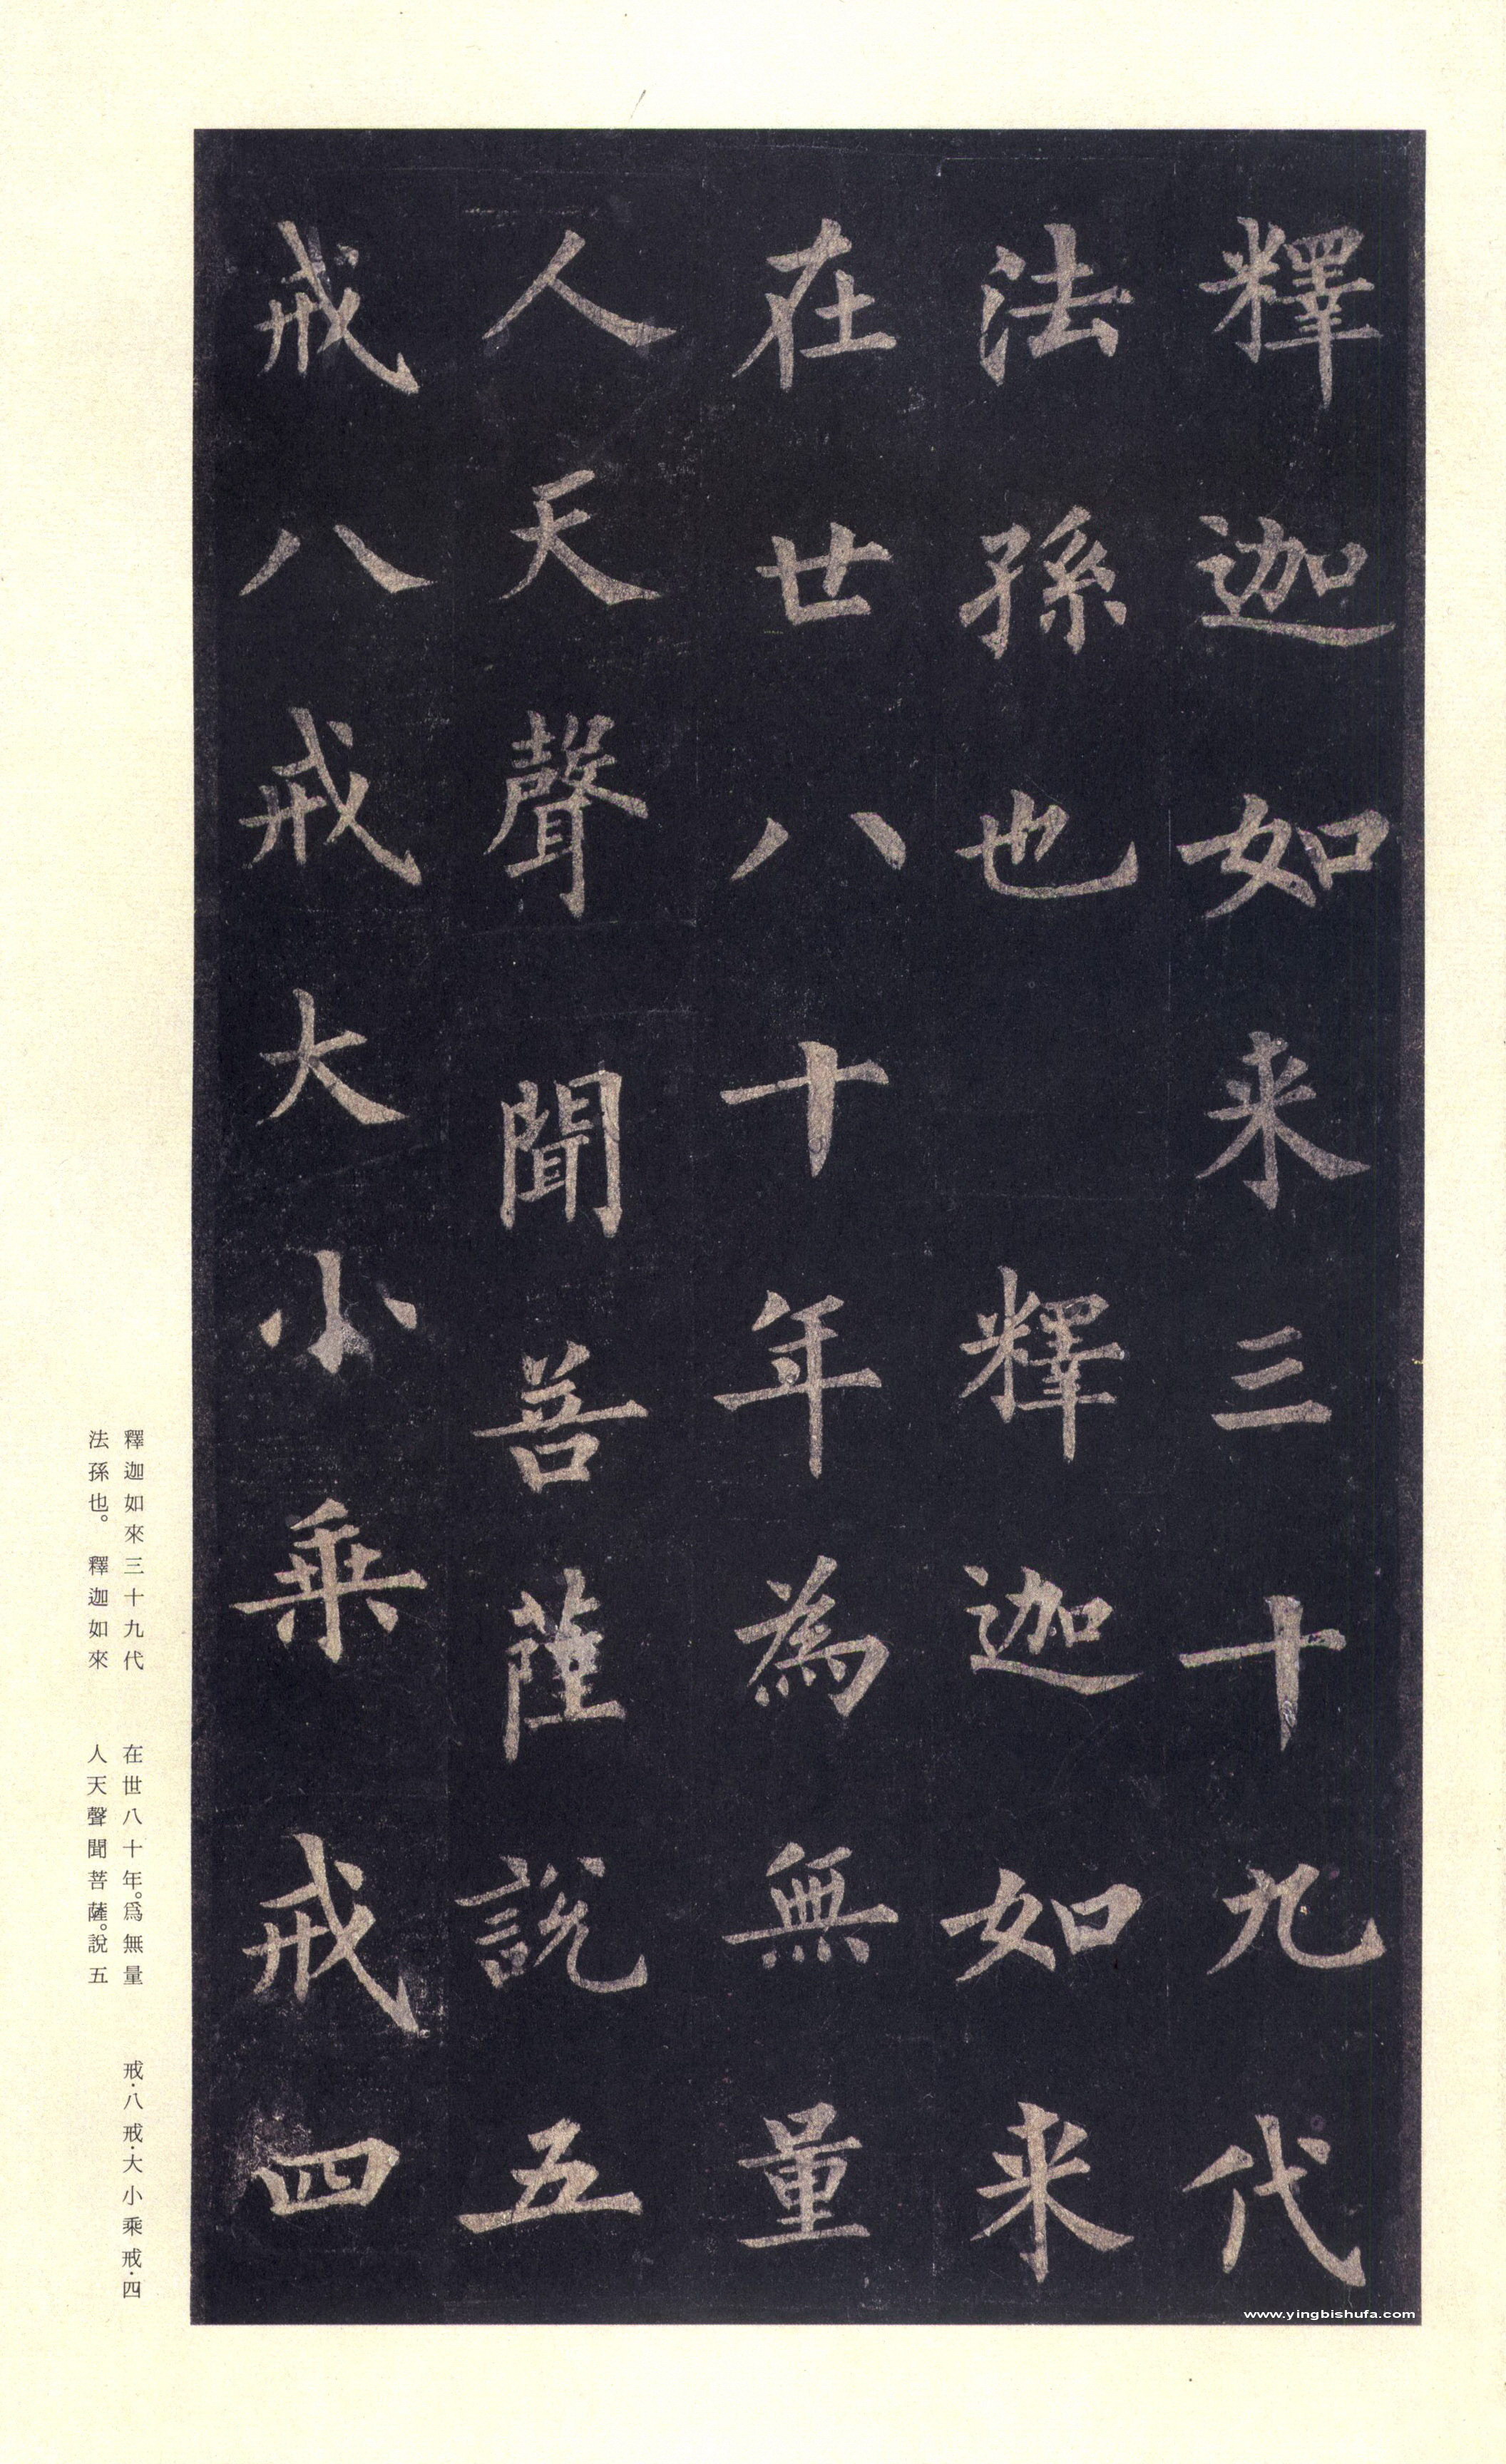 釋迦如来三十九代
法孫也　釋迦如来
在世八十年為無量
人天聲聞菩薩說五
戒八戒大小乘戒四
釋迦如來三十九代
法孫也。釋迦如來
在世八十年。爲無量
人天聲聞菩薩。說五
戒·八戒·大小乘戒·四
www.yingbishufa.com